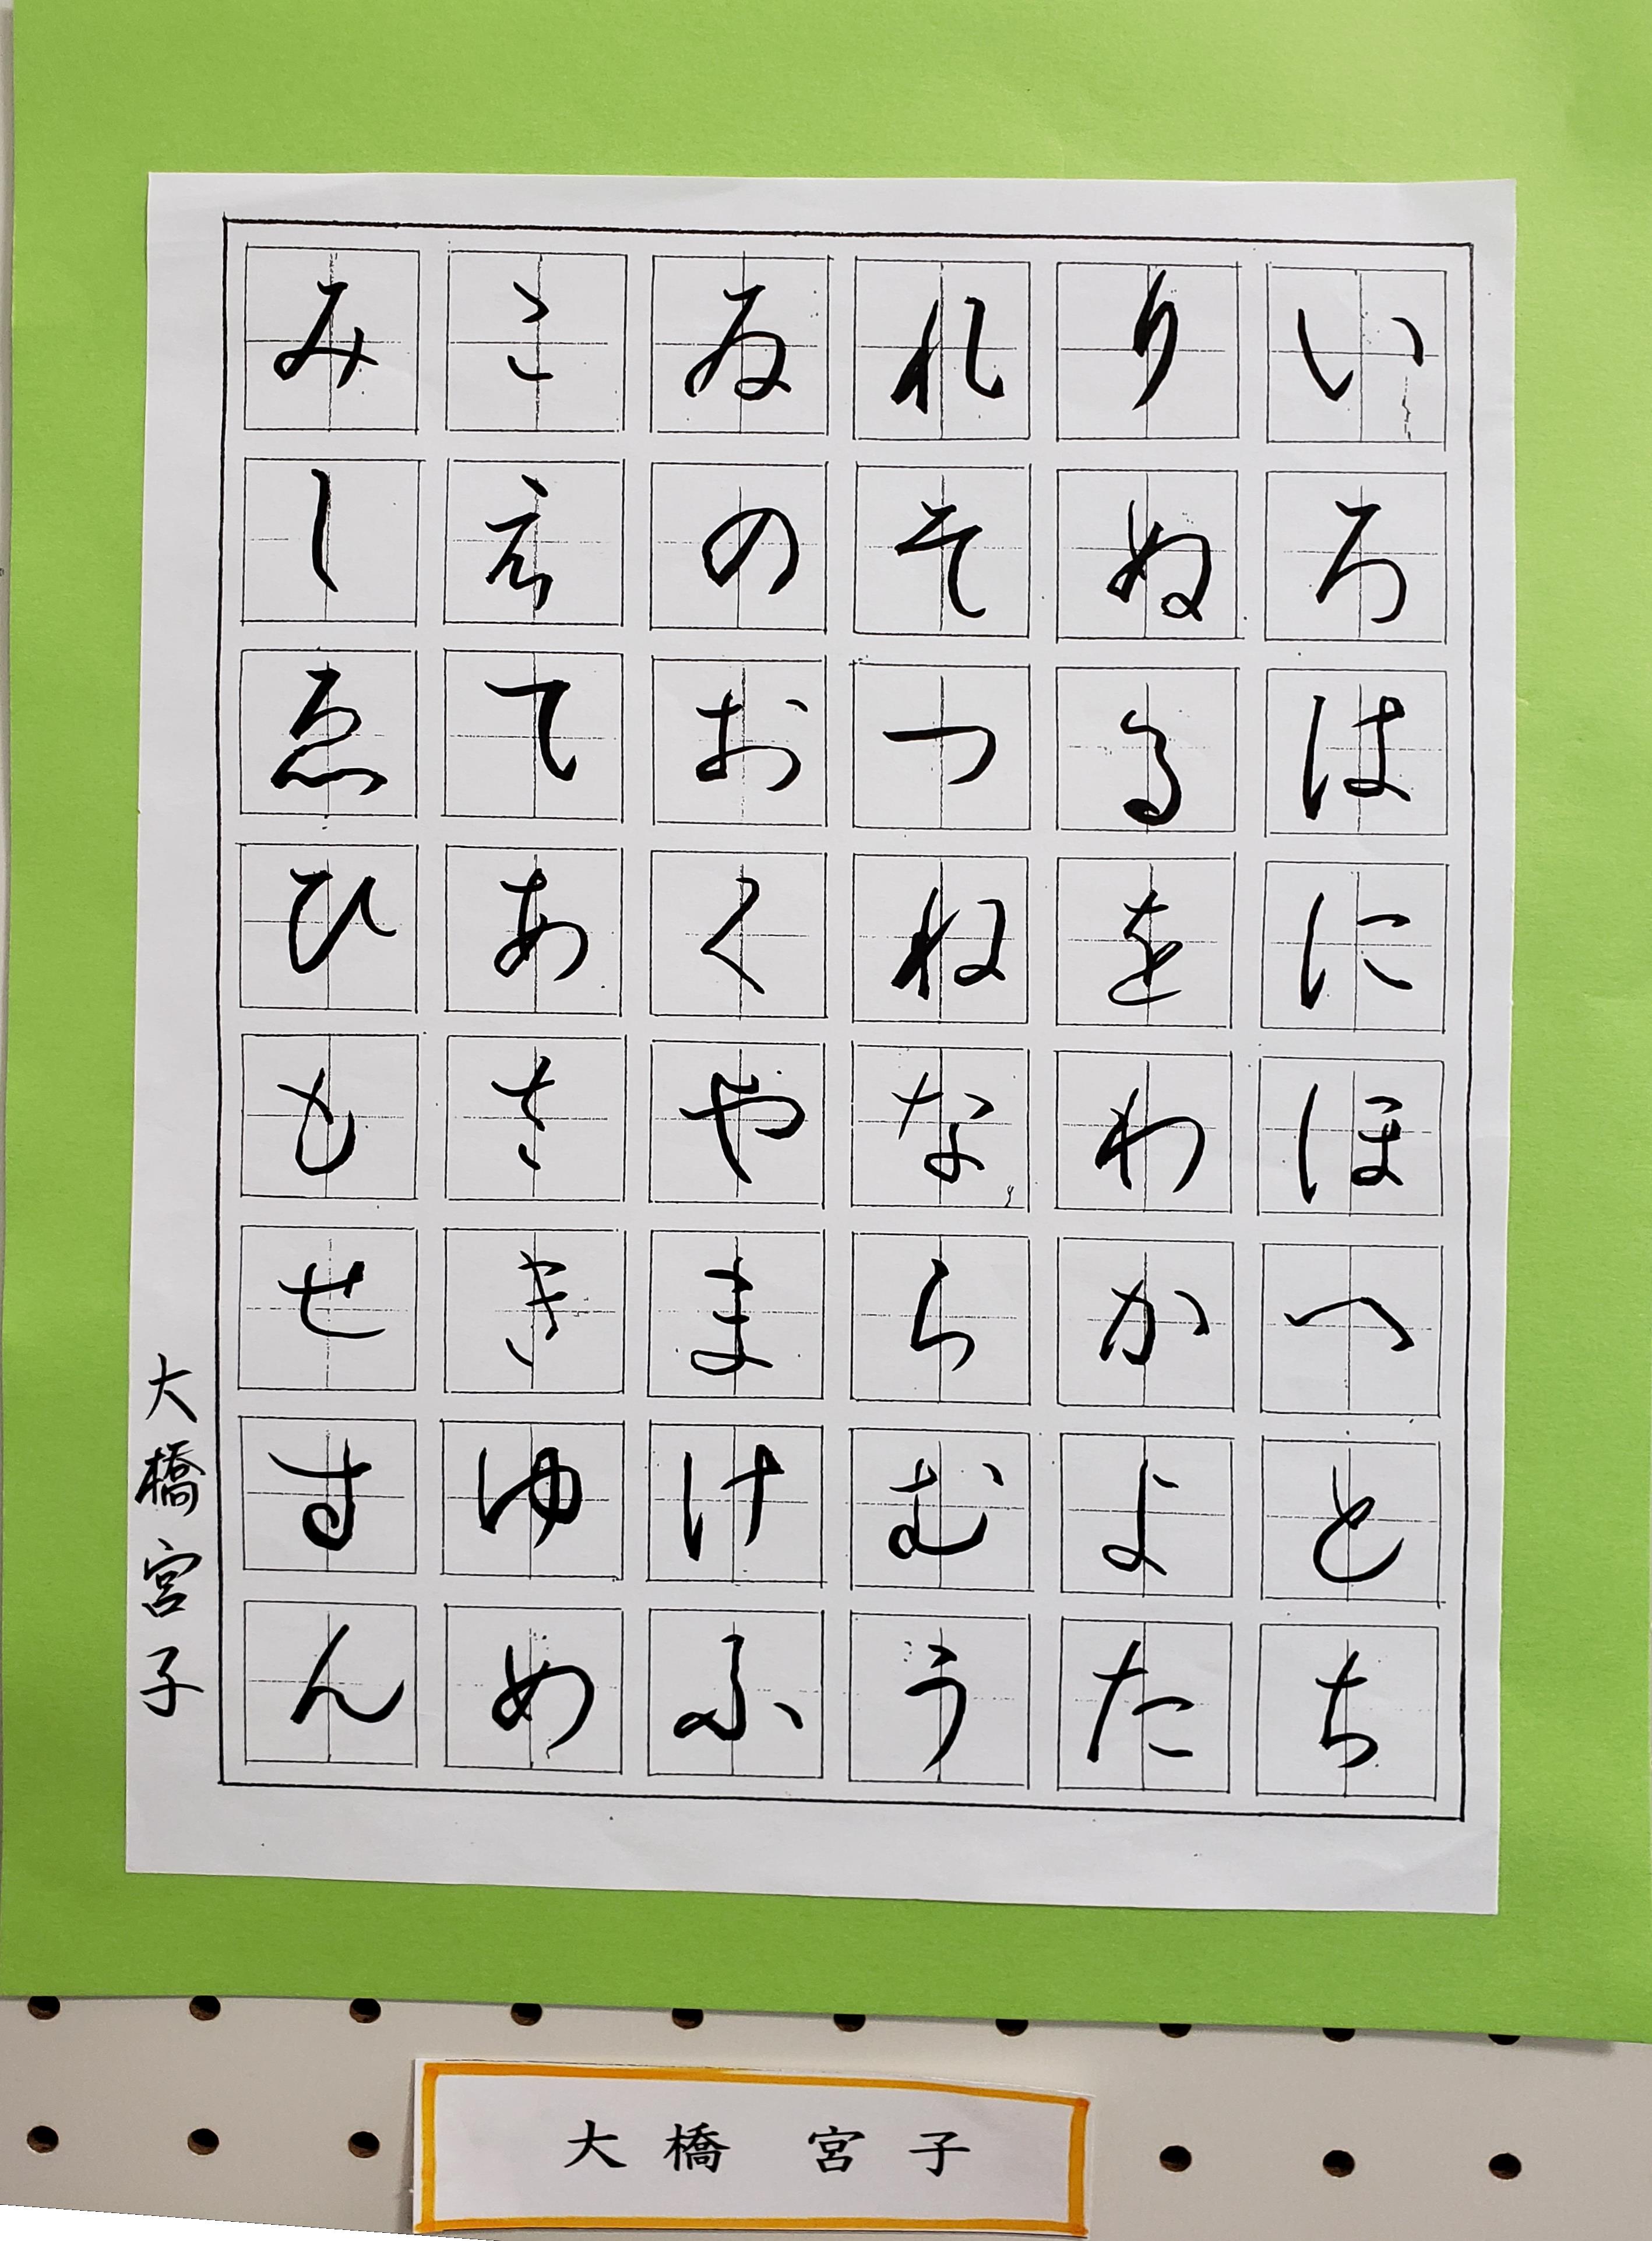 いろはにほへとち
りぬるをわかよた
れそつねならむう
ゐのおくやまけふ
こえてあさきゆめ
みしゑひもせすん
大橋宮子
大橋 宮子